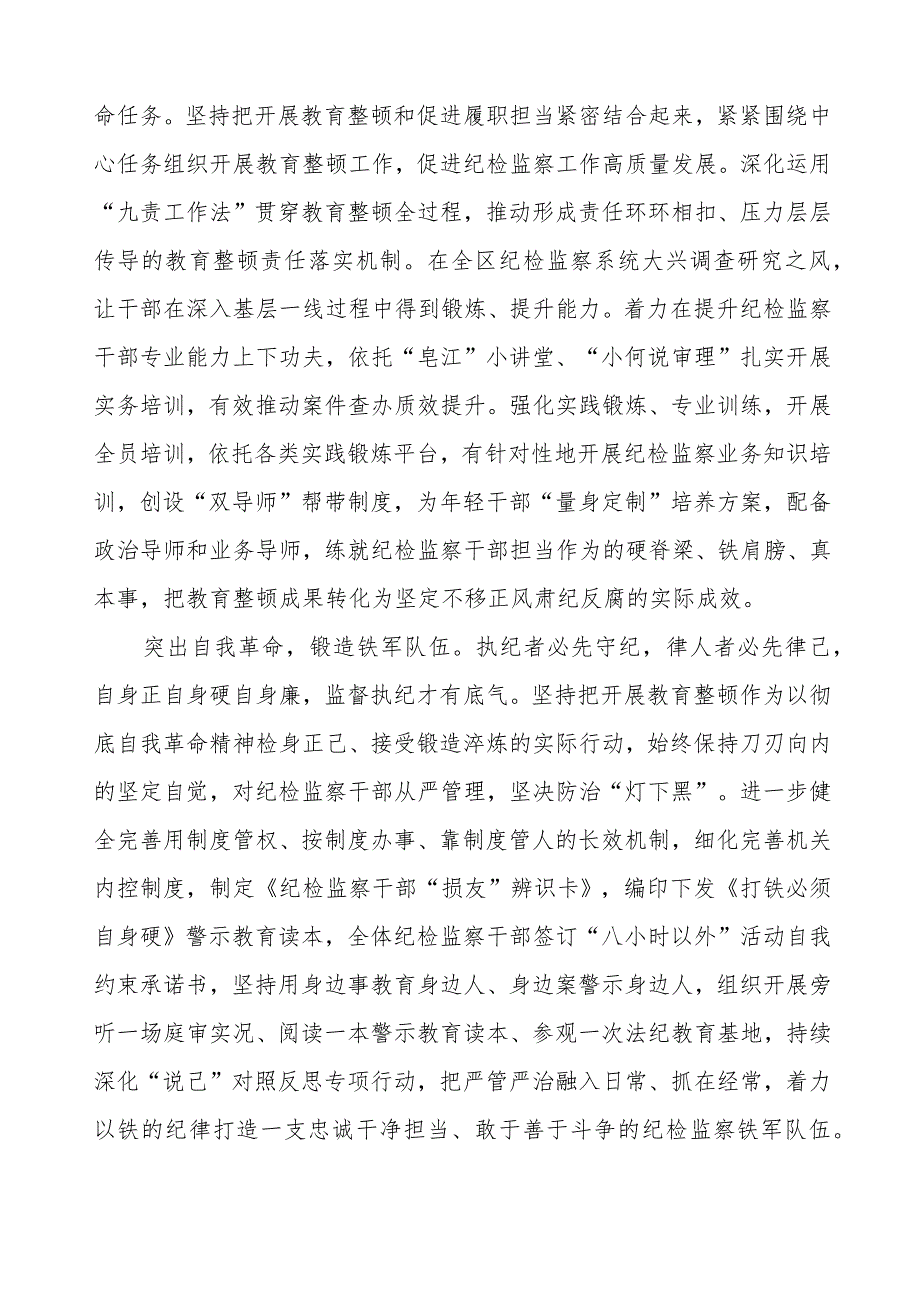 命任务。坚持把开展教育整顿和促进履职担当紧密结合起来，紧紧围绕中
心任务组织开展教育整顿工作，促进纪检监察工作高质量发展。深化运用
“九责工作法”贯穿教育整顿全过程，推动形成责任环环相扣、压力层层
传导的教育整顿责任落实机制。在全区纪检监察系统大兴调查研究之风，
让干部在深入基层一线过程中得到锻炼、提升能力。着力在提升纪检监察
干部专业能力上下功夫，依托“皂江”小讲堂、“小何说审理”扎实开展
实务培训，有效推动案件查办质效提升。强化实践锻炼、专业训练，开展
全员培训，依托各类实践锻炼平台，有针对性地开展纪检监察业务知识培
训，创设“双导师”帮带制度，为年轻干部“量身定制”培养方案，配备
政治导师和业务导师，练就纪检监察干部担当作为的硬脊梁、铁肩膀、真
本事，把教育整顿成果转化为坚定不移正风肃纪反腐的实际成效。
突出自我革命，锻造铁军队伍。执纪者必先守纪，律人者必先律己，
自身正自身硬自身廉，监督执纪才有底气。坚持把开展教育整顿作为以彻
底自我革命精神检身正己、接受锻造淬炼的实际行动，始终保持刀刃向内
的坚定自觉，对纪检监察干部从严管理，坚决防治“灯下黑”。进一步健
全完善用制度管权、按制度办事、靠制度管人的长效机制，细化完善机关
内控制度，制定《纪检监察干部“损友”辨识卡》，编印下发《打铁必须
自身硬》警示教育读本，全体纪检监察干部签订“八小时以外”活动自我
约束承诺书，坚持用身边事教育身边人、身边案警示身边人，组织开展旁
听一场庭审实况、阅读一本警示教育读本、参观一次法纪教育基地，持续
深化“说己”对照反思专项行动，把严管严治融入日常、抓在经常，着力
以铁的纪律打造一支忠诚干净担当、敢于善于斗争的纪检监察铁军队伍。